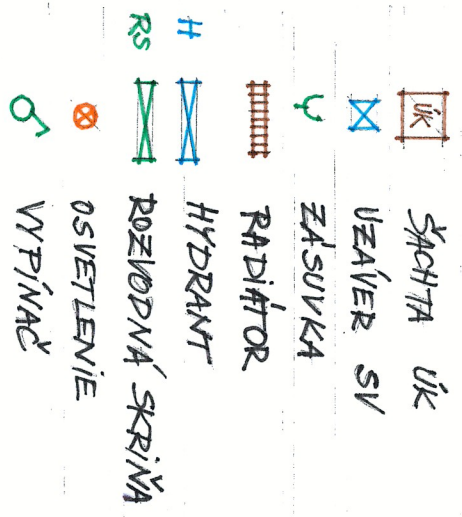 ÚK ŠACHTA ÚK
UZÁVER SV
ZÁSUVKA
RADIÁTOR
H HYDRANT
RS ROZVODNÁ SKRIŇA
OSVETLENIE
VYPÍNAČ